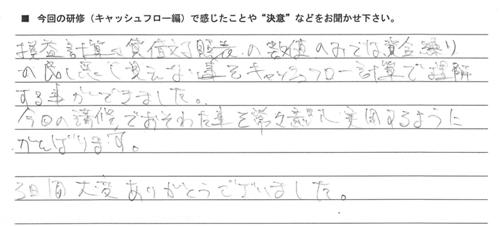 ■ 今回の研修（キャッシュフロー編）で感じたことや“決意”などをお聞かせ下さい。
損益計算書貸借対照表の数値のみでは資金繰り
の良し悪しで見えない事をキャッシュフロー計算で理解
する事ができました。
今回の講習でおそわた事を常々意識し実用するように
がんばります。
3日間大変ありがとうございました。